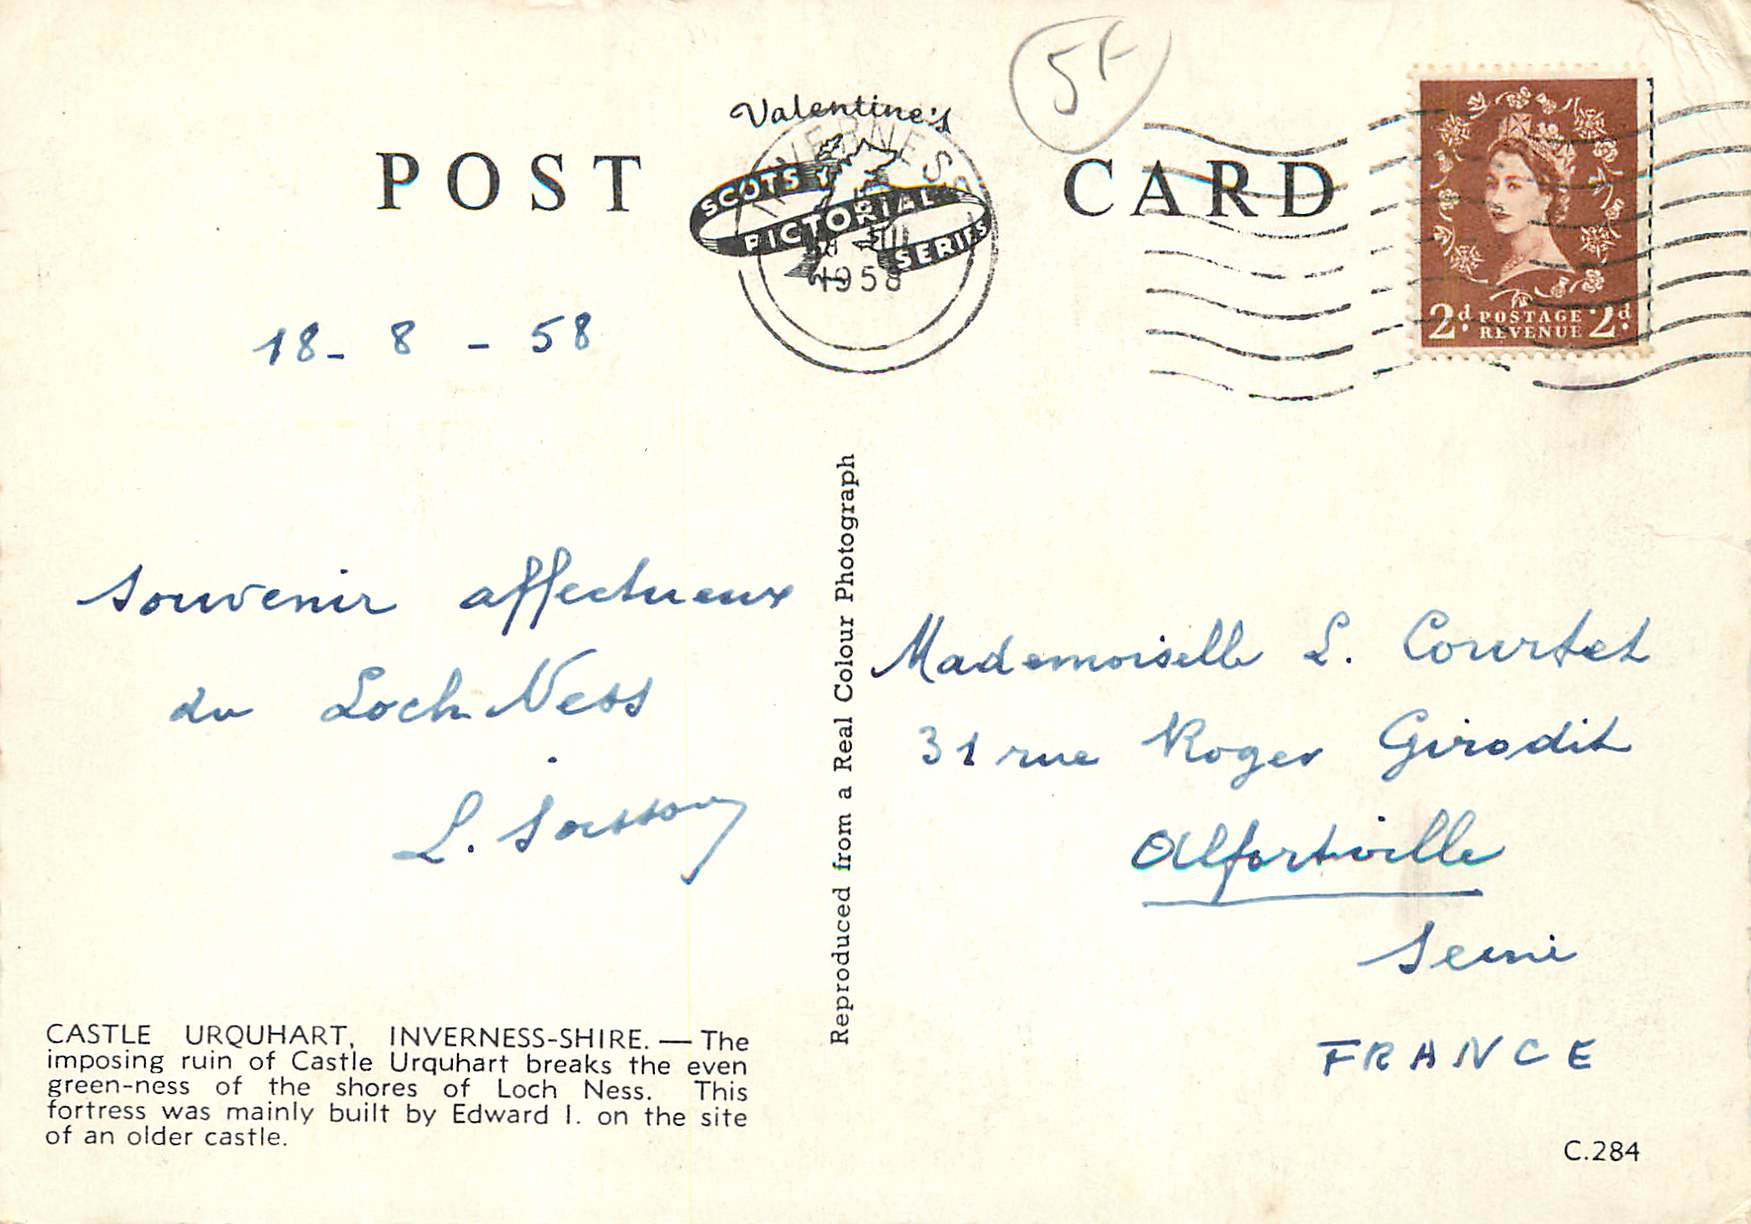 5F
Valentine's
POST CARD
SCOTS
PICTORIAL
SERIES
INVERNESS
1958
2d POSTAGE 2d
REVENUE
18-8-58
Souvenir affectueux
du Loch Ness
L.
Reproduced from a Real Colour Photograph
Mademoiselle L. Courtet
31 rue Roger Girodit
Alfortville
Seine
FRANCE
CASTLE URQUHART, INVERNESS-SHIRE. — The
imposing ruin of Castle Urquhart breaks the even
green-ness of the shores of Loch Ness. This
fortress was mainly built by Edward I. on the site
of an older castle.
C.284